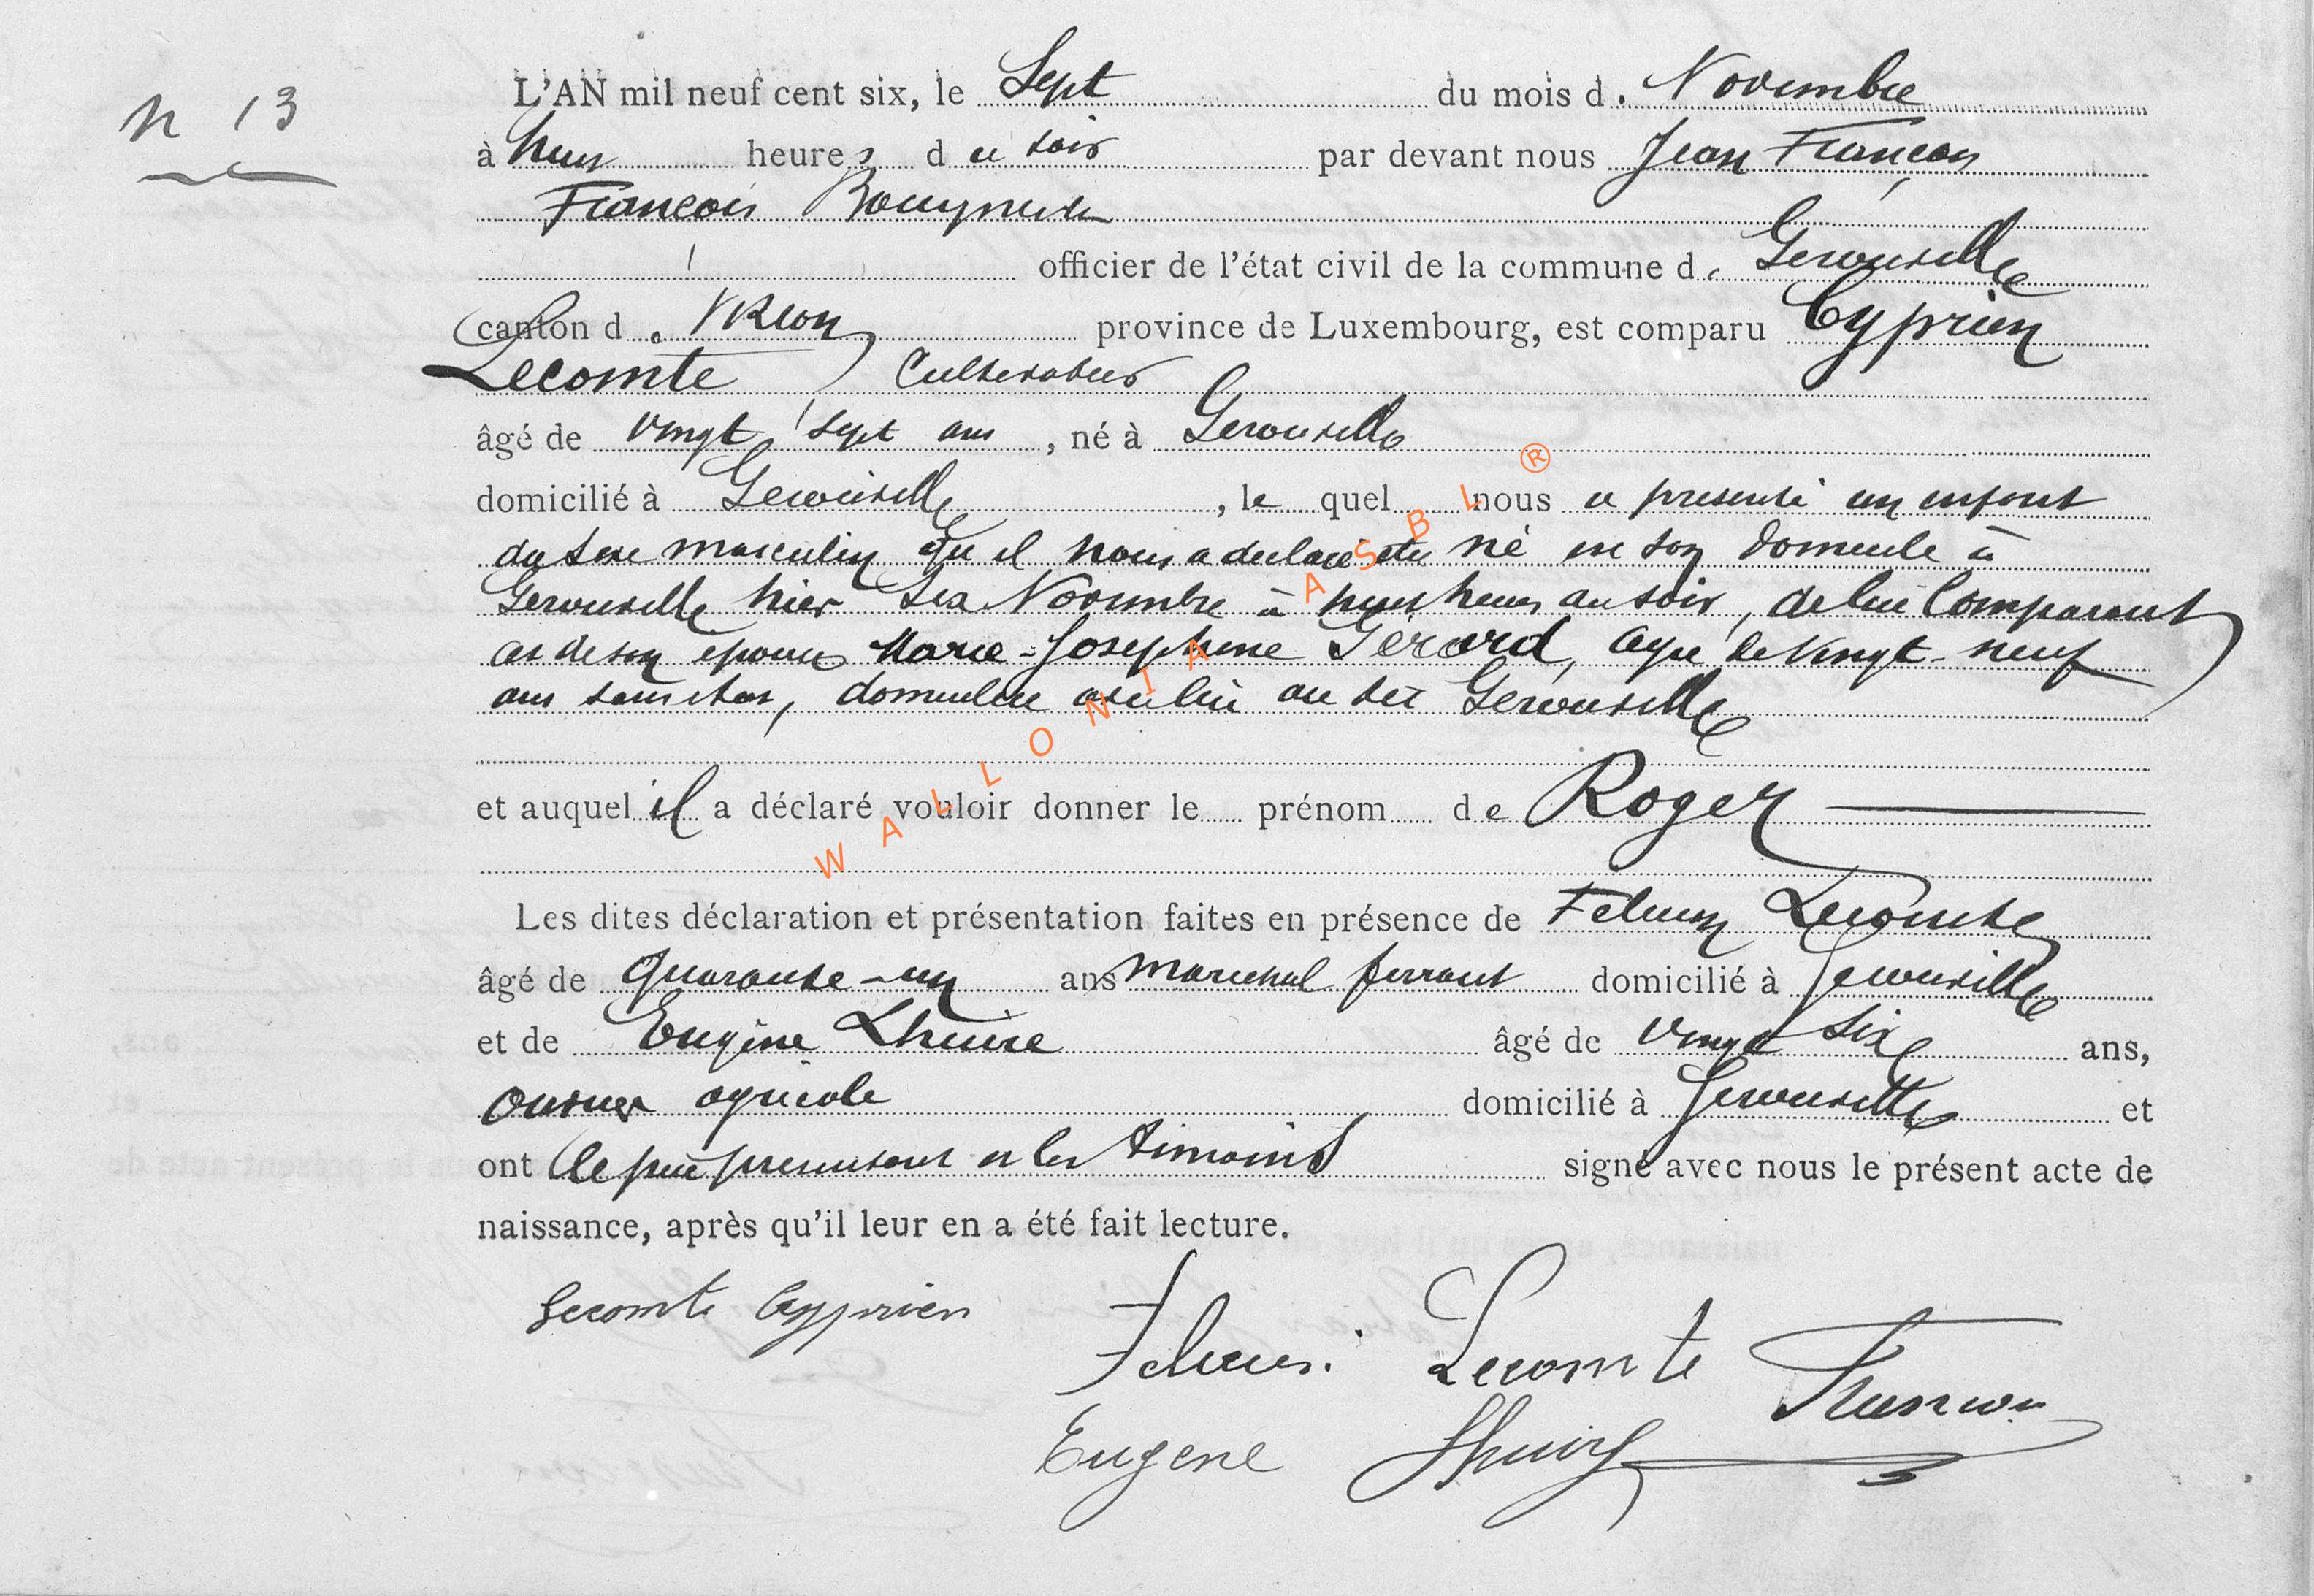 N 13
L'AN mil neuf cent six, le Sept du mois de Novembre
à heures du soir par devant nous Jean François
François
officier de l'état civil de la commune de Gerouville
canton de Virton province de Luxembourg, est comparu Cyprien
Lecomte Cultivateur
âgé de vingt sept ans, né à Gerouville
domicilié à Gerouville, le quel nous a présenté un enfant
du sexe masculin qu'il nous a déclaré être né en son domicile à
Gerouville hier six Novembre à heures du soir, de lui Comparant
et de son épouse Marie-Josephine Gérard, agée de vingt-neuf
ans sans état, domiciliée avec lui au dit Gerouville
et auquel il a déclaré vouloir donner le prénom de Roger
Les dites déclaration et présentation faites en présence de Felicien Lecomte
âgé de quarante-un ans marechal ferrant domicilié à Gerouville
et de Eugène Lhuire âgé de vingt six ans,
ouvrier agricole domicilié à Gerouville et
ont le père présentant et les témoins signé avec nous le présent acte de
naissance, après qu'il leur en a été fait lecture.
Lecomte Cyprien
Felicien Lecomte
Eugene
WALLONIA ASBL ®